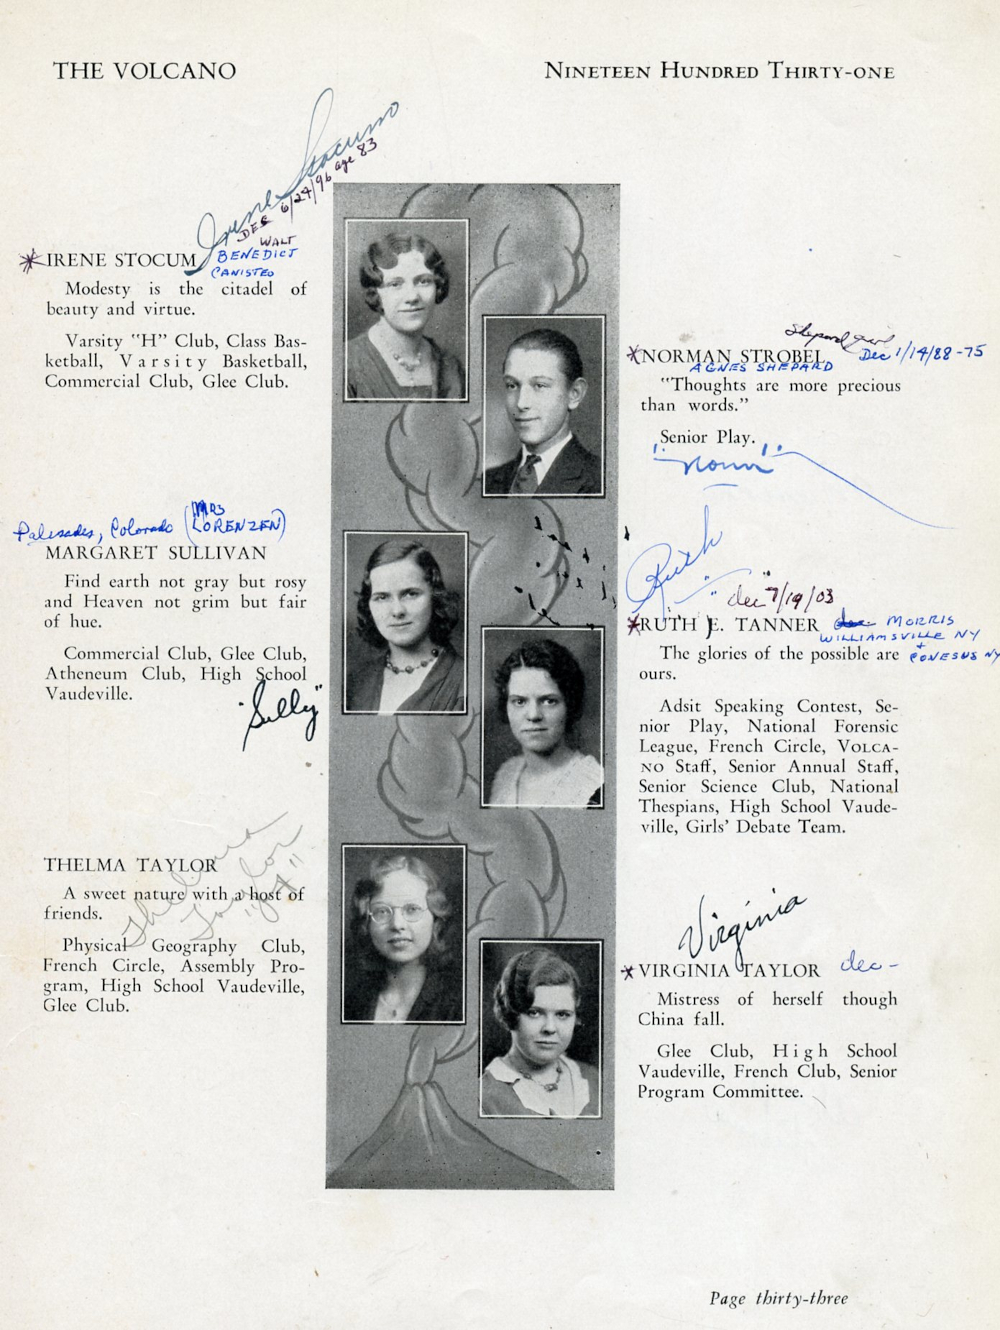 THE VOLCANO
NINETEEN HUNDRED THIRTY-ONE
Irene Stocum
DEC 6/24/96 age 83
WALT
BENEDICT
CANISTEO
*IRENE STOCUM
Modesty is the citadel of
beauty and virtue.
Varsity "H" Club, Class Bas-
ketball, Varsity Basketball,
Commercial Club, Glee Club.
Shepard
*NORMAN STROBEL
Dec 1/14/88-75
AGNES SHEPARD
"Thoughts are more precious
than words."
Senior Play.
"Norm"
Palisades, Colorado (MRS
LORENZEN)
MARGARET SULLIVAN
Find earth not gray but rosy
and Heaven not grim but fair
of hue.
Commercial Club, Glee Club,
Atheneum Club, High School
Vaudeville.
"Sully"
"Ruth"
dec 7/19/03
*RUTH E. TANNER
MORRIS
WILLIAMSVILLE NY
+
CONESUS NY
The glories of the possible are
ours.
Adsit Speaking Contest, Se-
nior Play, National Forensic
League, French Circle, VOLCA-
NO Staff, Senior Annual Staff,
Senior Science Club, National
Thespians, High School Vaude-
ville, Girls' Debate Team.
Thelma
Taylor
THELMA TAYLOR
A sweet nature with a host of
friends.
Physical Geography Club,
French Circle, Assembly Pro-
gram, High School Vaudeville,
Glee Club.
Virginia
*VIRGINIA TAYLOR dec-
Mistress of herself though
China fall.
Glee Club, High School
Vaudeville, French Club, Senior
Program Committee.
Page thirty-three